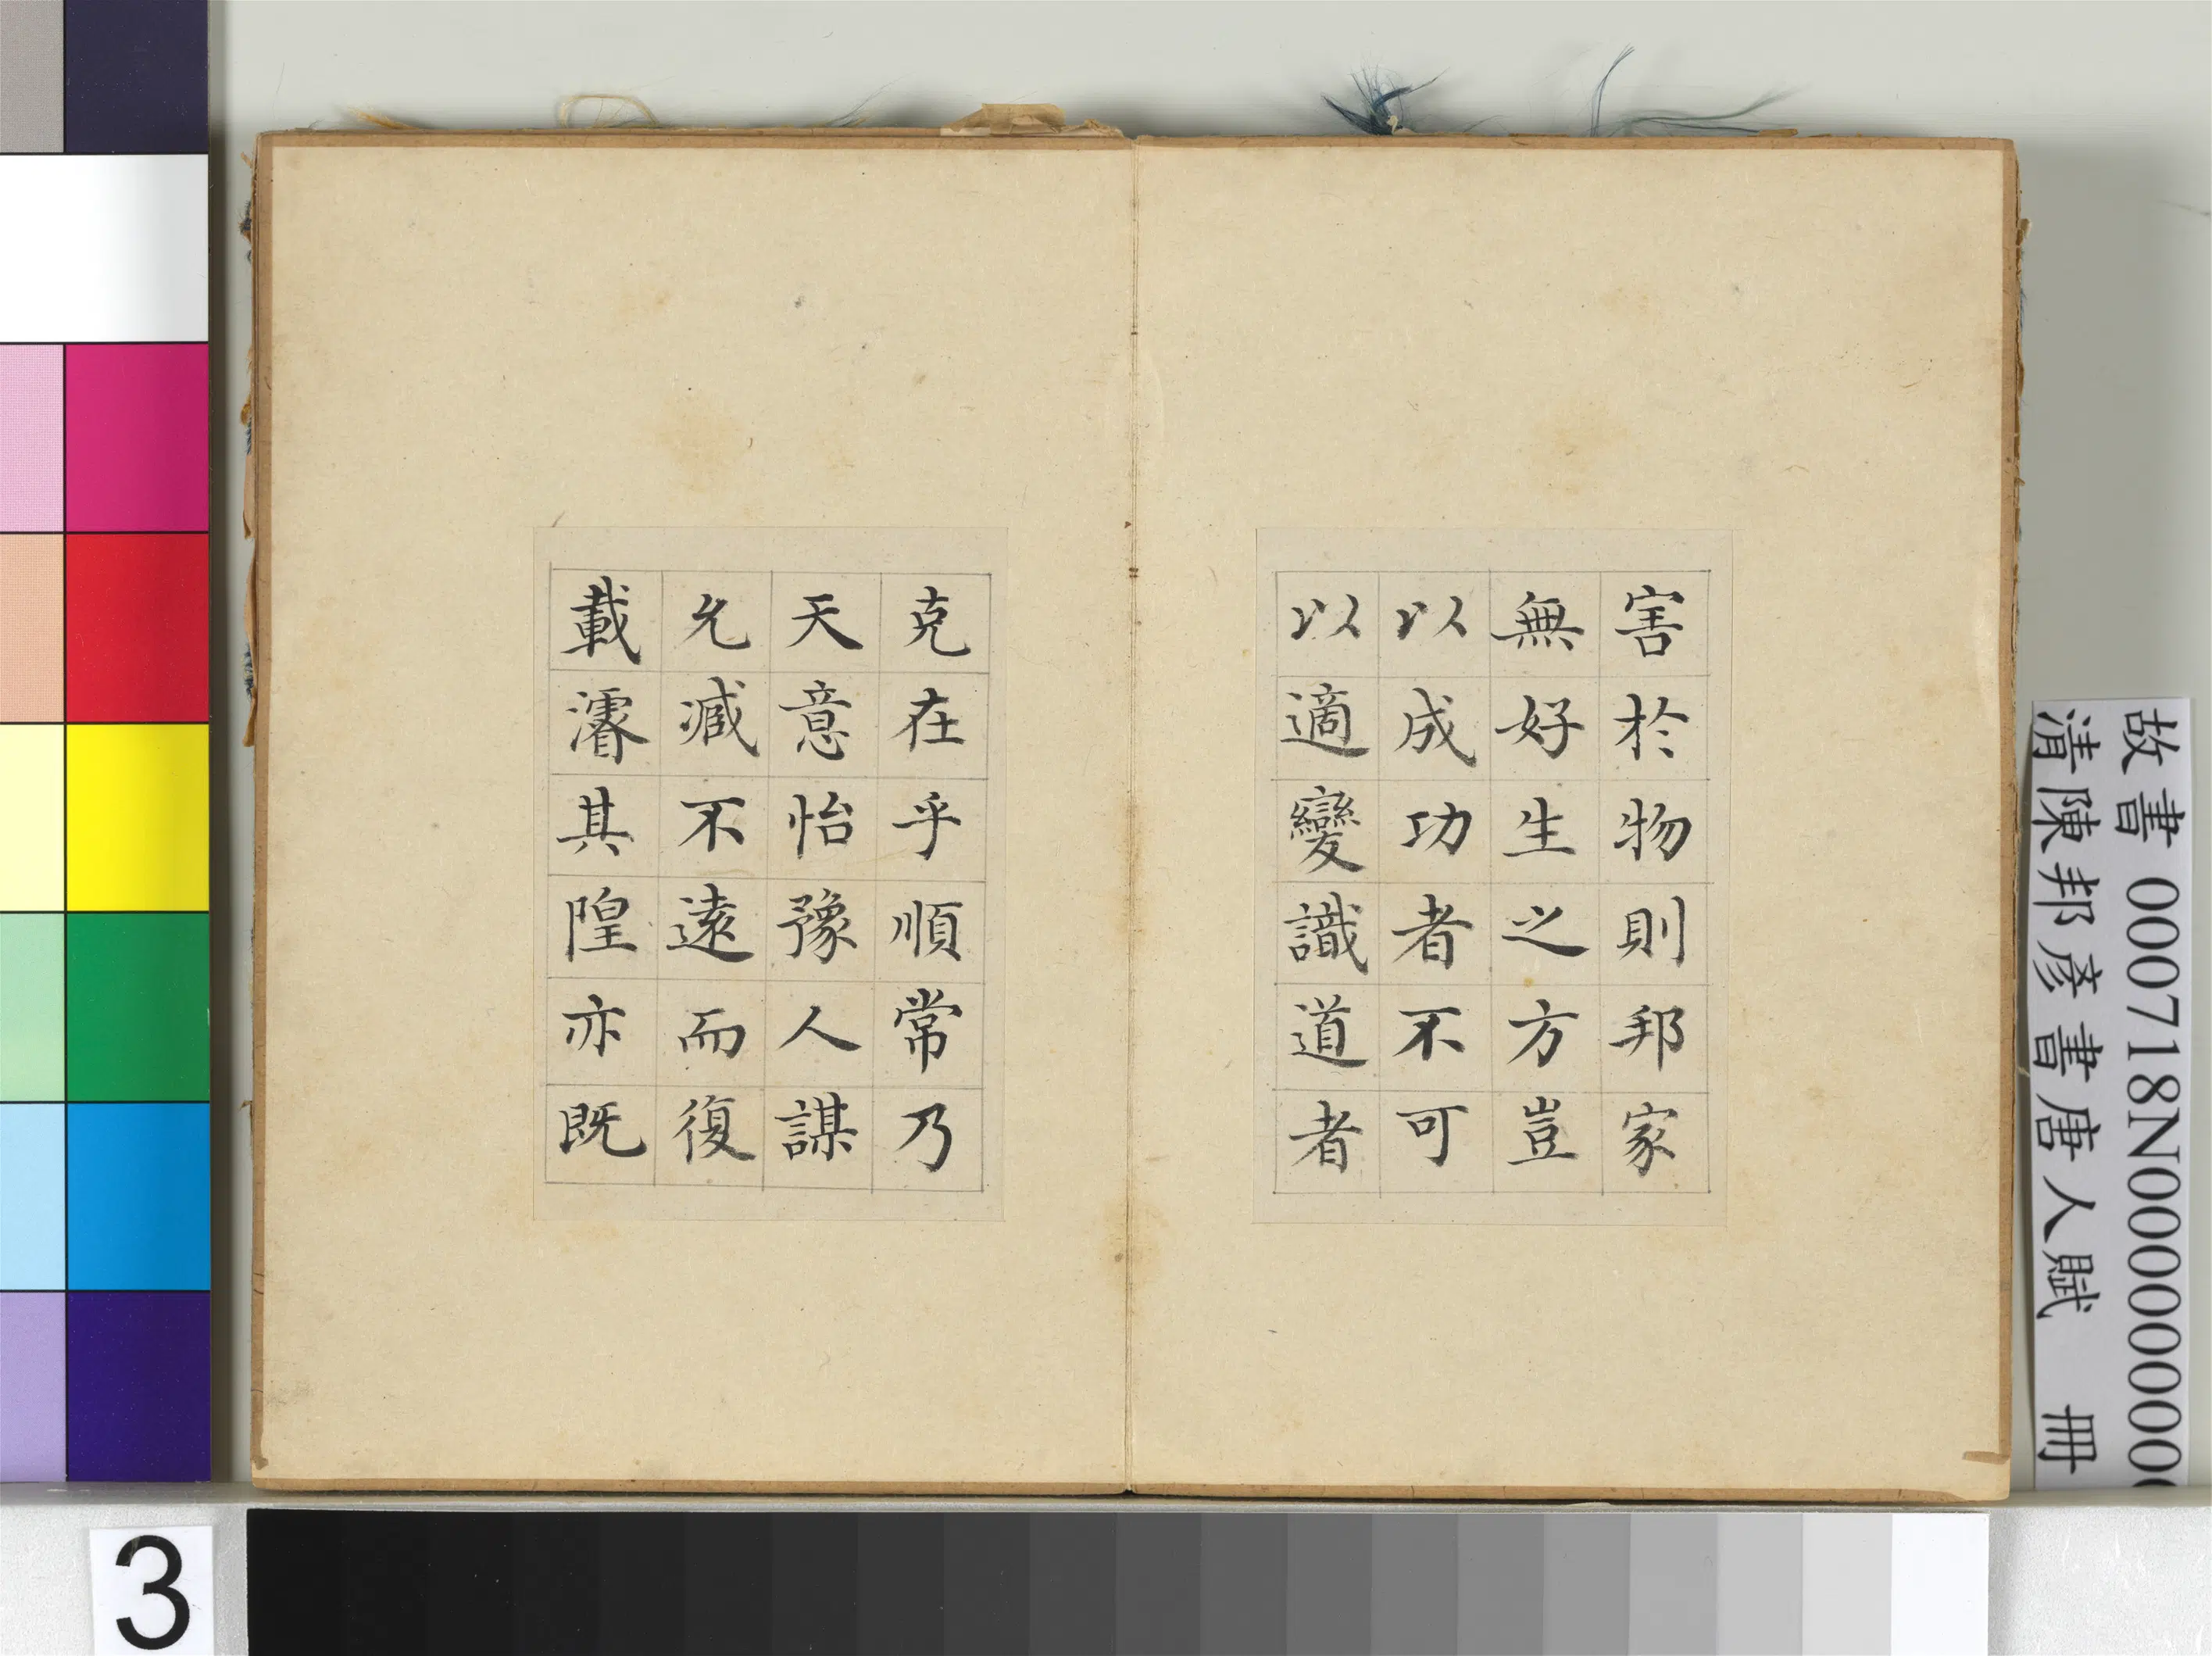 害於物則邦家
無好生之方豈
以成功者不可
以適變識道者
克在乎順常乃
天意怡豫人謀
允臧不遠而復
載濬其隍亦既
故書000718N0000000000
清陳邦彥書唐人賦 冊
3